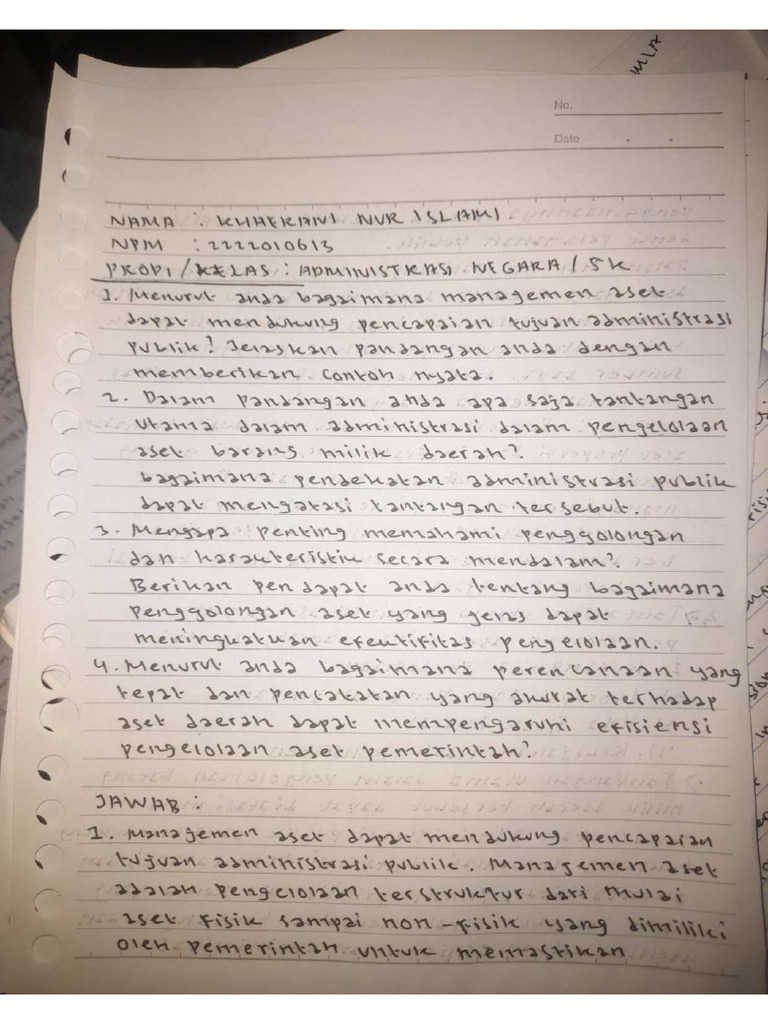 MLA
No.
Date
NAMA : KHAERANI NUR ISLAMI.
NPM : 2222010613
PRODI / KELAS : ADMINISTRASI NEGARA / 5K
1. Menurut anda bagaimana managemen aset
dapat mendukung pencapaian tujuan administrasi
publik? Jelaskan pandangan anda dengan
memberikan contoh nyata.
2. Dalam pandangan anda apa saja tantangan
utama dalam administrasi dalam pengelolaan
aset barang milik daerah?
bagaimana pendekatan administrasi publik
dapat mengatasi tantangan tersebut.
3. Mengapa penting memahami penggolongan
dan karakteristik secara mendalam?
Berikan pendapat anda tentang bagaimana
penggolongan aset yang jelas dapat
meningkatkan efektifitas pengelolaan.
4. Menurut anda bagaimana perencanaan yang
tepat dan pencatatan yang akurat terhadap
aset daerah dapat mempengaruhi efisiensi
pengelolaan aset pemerintah?
JAWAB :
1. Managemen aset dapat mendukung pencapaian
tujuan administrasi publik. Managemen aset
adalah pengelolaan terstruktur dari mulai
aset fisik sampai non-fisik yang dimiliki
oleh pemerintah untuk memastikan